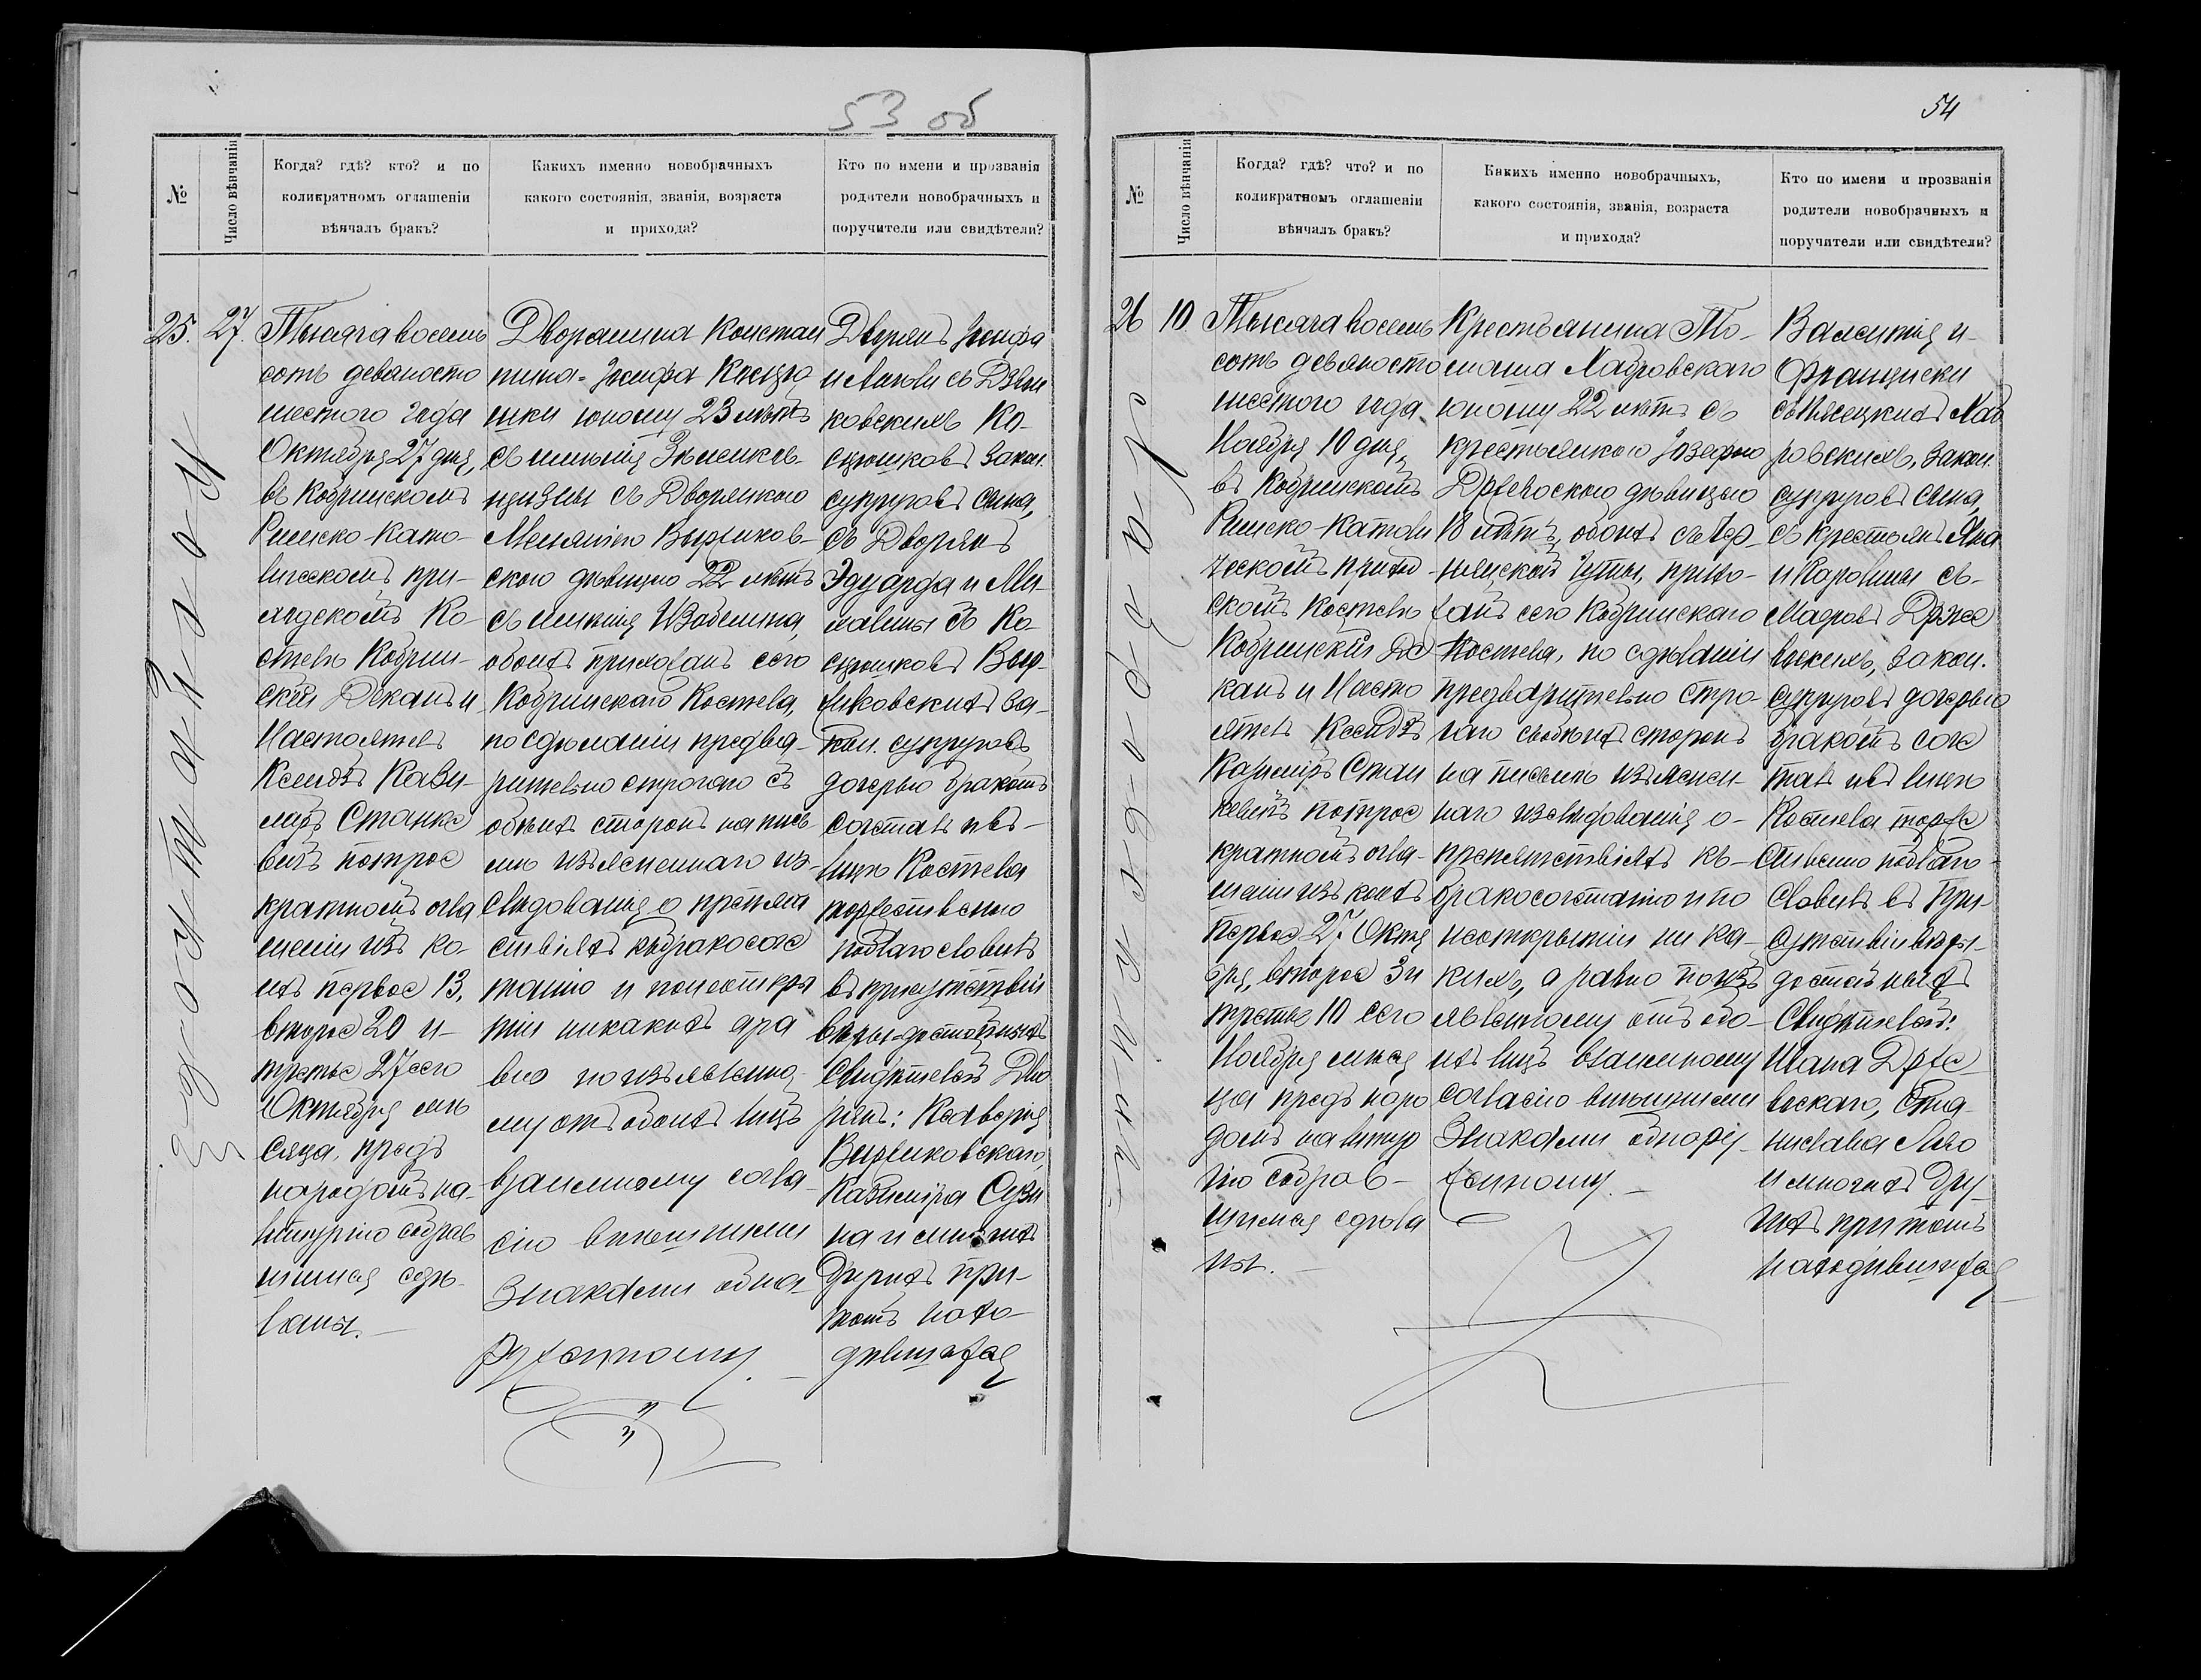 53 об
№
Число вѣнчанія
Когда? гдѣ? кто? и по
коликратномъ оглашеніи
вѣнчалъ бракъ?
Какихъ именно новобрачныхъ
какого состоянія, званія, возраста
и прихода?
Кто по имени и прозванія
родители новобрачныхъ и
поручители или свидѣтели?
25.
27.
Тысяча восемь
сотъ девяносто
шестого года
Октября 27 дня,
въ Кобринскомъ
Римско-Като-
лическомъ при-
ходскомъ Ко-
стелѣ Кобрин-
скій Деканъ и
Настоятель
Ксендзъ Кази-
міръ Станке
вичъ потрое
кратномъ огла
шеніи изъ ко-
ихъ первое 13,
второе 20 и
третье 27 сего
Октября мѣ
сяца, предъ
народомъ на
литургію собрав
шимся сдѣ-
ланы.
Дворянина Констан
тина-Іосифа Косцю
шки юному 23 лѣтъ
съ имѣнія
съ Дворянкою
Меляніею Выржиков-
скою дѣвицею 22 лѣтъ
съ имѣнія Изабелина,
обоихъ прихожанъ сего
Кобринскаго Костела,
по сдѣланіи предва-
рительно строгаго съ
обѣихъ сторонъ на пись
мѣ изъясненнаго из-
слѣдованія о препят
ствіяхъ къ бракосоче
танію и по неоткры
тіи никакихъ а ра
вно по изъявленно
му отъ обоихъ лицъ
взаимному согла-
сію внѣшними
знаками обна
руженному.
Дворянъ Іосифа
и съ Дзен
ковскихъ Ко-
сцюшковъ закон.
супруговъ сына,
съ Дворянъ
Эдуарда и Ма-
львины съ Ко-
сцюшковъ Выр-
жиковскихъ за-
кон. супруговъ
дочерью бракомъ
сочеталъ и въ
лицѣ Костела
торжественно
поблагословилъ
въ присутствіи
вѣры-достойныхъ
Свидѣтелей Дво
рянъ: Ксаверія
Выржиковскаго,
Казиміра Сузи
на и многихъ
другихъ при
томъ нахо-
дившихся
54
№
Число вѣнчанія
Когда? гдѣ? что? и по
коликратномъ оглашеніи
вѣнчалъ бракъ?
Какихъ именно новобрачныхъ,
какого состоянія, званія, возраста
и прихода?
Кто по имени и прозванія
родители новобрачныхъ и
поручители или свидѣтели?
26
10
Тысяча восемь
сотъ девяносто
шестого года
Ноября 10 дня,
въ Кобринскомъ
Римско-Католи
ческомъ приход
скомъ Костелѣ
Кобринскій Де
канъ и Насто
ятель Ксендзъ
Казиміръ Стан
кевичъ потрое
кратномъ огла-
шеніи изъ коихъ
первое 27 Октя
бря, второе 3 и
третье 10 сего
Ноября мѣся
ца предъ наро
домъ на литур
гію собрав-
шимся сдѣла
ны.
Крестьянина То-
маша Хабровскаго
юному 22 лѣтъ съ
крестьянкою Іозефою
Држевоскою дѣвицею
18 лѣтъ, обоихъ съ
Гуты, прихо-
жанъ сего Кобринскаго
Костела, по сдѣланіи
предварительно стро-
гаго съ обѣихъ сторонъ
на письмѣ изъяснен-
наго изслѣдованія о
препятствіяхъ къ
бракосочетанію и по
неоткрытіи ни ка-
кихъ, а равно по изъ
явленному отъ обо-
ихъ лицъ взаимному
согласію внѣшними
знаками обнару-
женному.
Валентія и
Франциски
съ Пясецкихъ Хаб
ровскихъ, закон.
супруговъ сына,
съ крестьянъ Яна
и Каролины съ
Мазровъ Држе
вускихъ, закон.
супруговъ дочерью
бракомъ соче
талъ и въ лицѣ
Костела торже
ственно поблаго-
словилъ въ при-
сутствіи вѣры-
достойныхъ
Свидѣтелей:
Ивана Држе
вускаго, Стани
слава
и многихъ дру
гихъ при томъ
находившихся